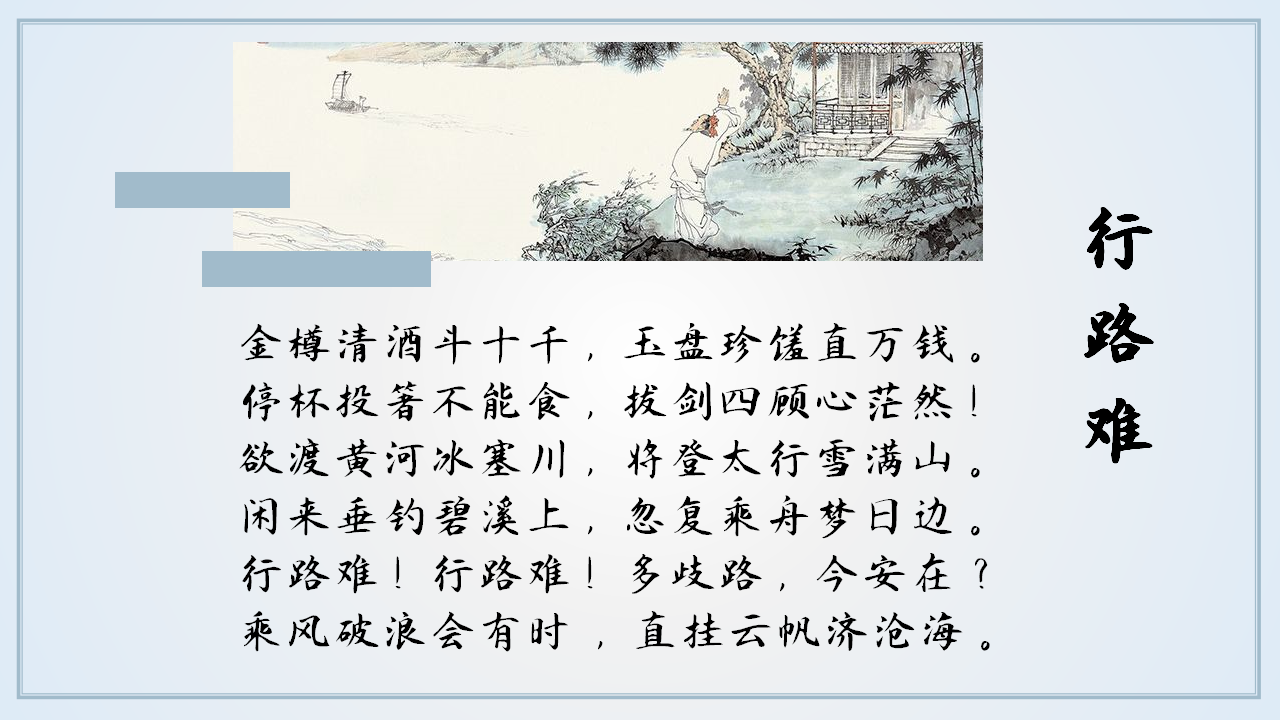 行路难
金樽清酒斗十千，玉盘珍馐直万钱。
停杯投箸不能食，拔剑四顾心茫然！
欲渡黄河冰塞川，将登太行雪满山。
闲来垂钓碧溪上，忽复乘舟梦日边。
行路难！行路难！多歧路，今安在？
乘风破浪会有时，直挂云帆济沧海。